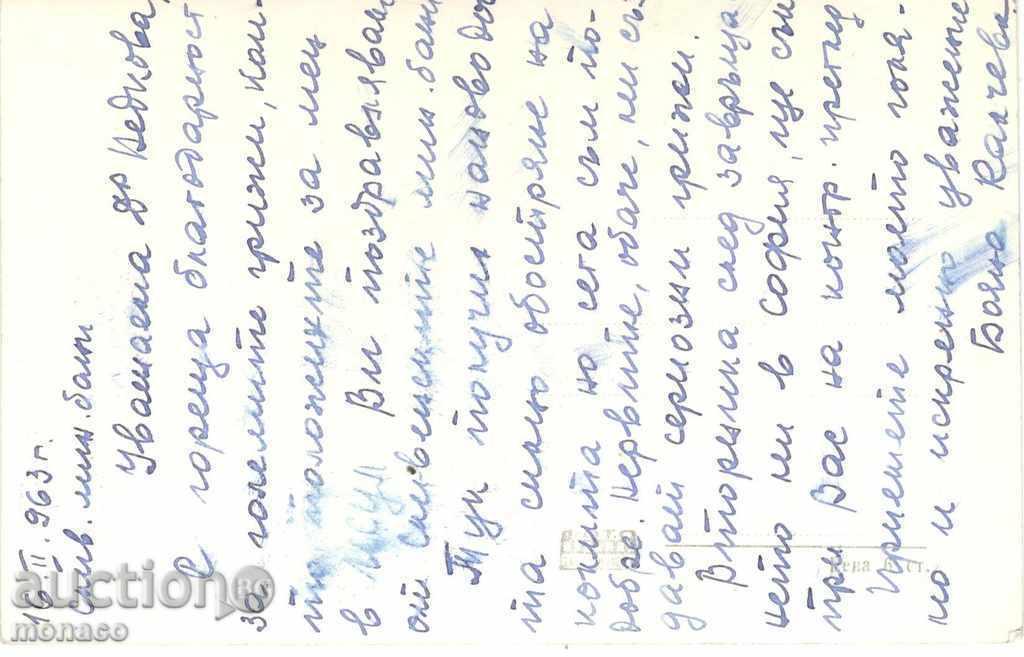 16.II.963 г.
Слив. мин. бани
Уважаема д-р Недкова,
С гореща благодарност
за големите грижи, кои-
то положихте за мен
в Ви поздравявам
от сливенските мин. бани
Тук получих наново до
та силно обостряне на
но сега съм по-
добре. Нервите, обаче, ми съ-
дават сериозни грижи.
Вторника след завръща-
нето ни в София, ще съм
при Вас на контр. преглед
Приемете моето голя-
мо и искрено уважение
Бояна Качева
Цена 6 ст.
аукцион BG
monaco